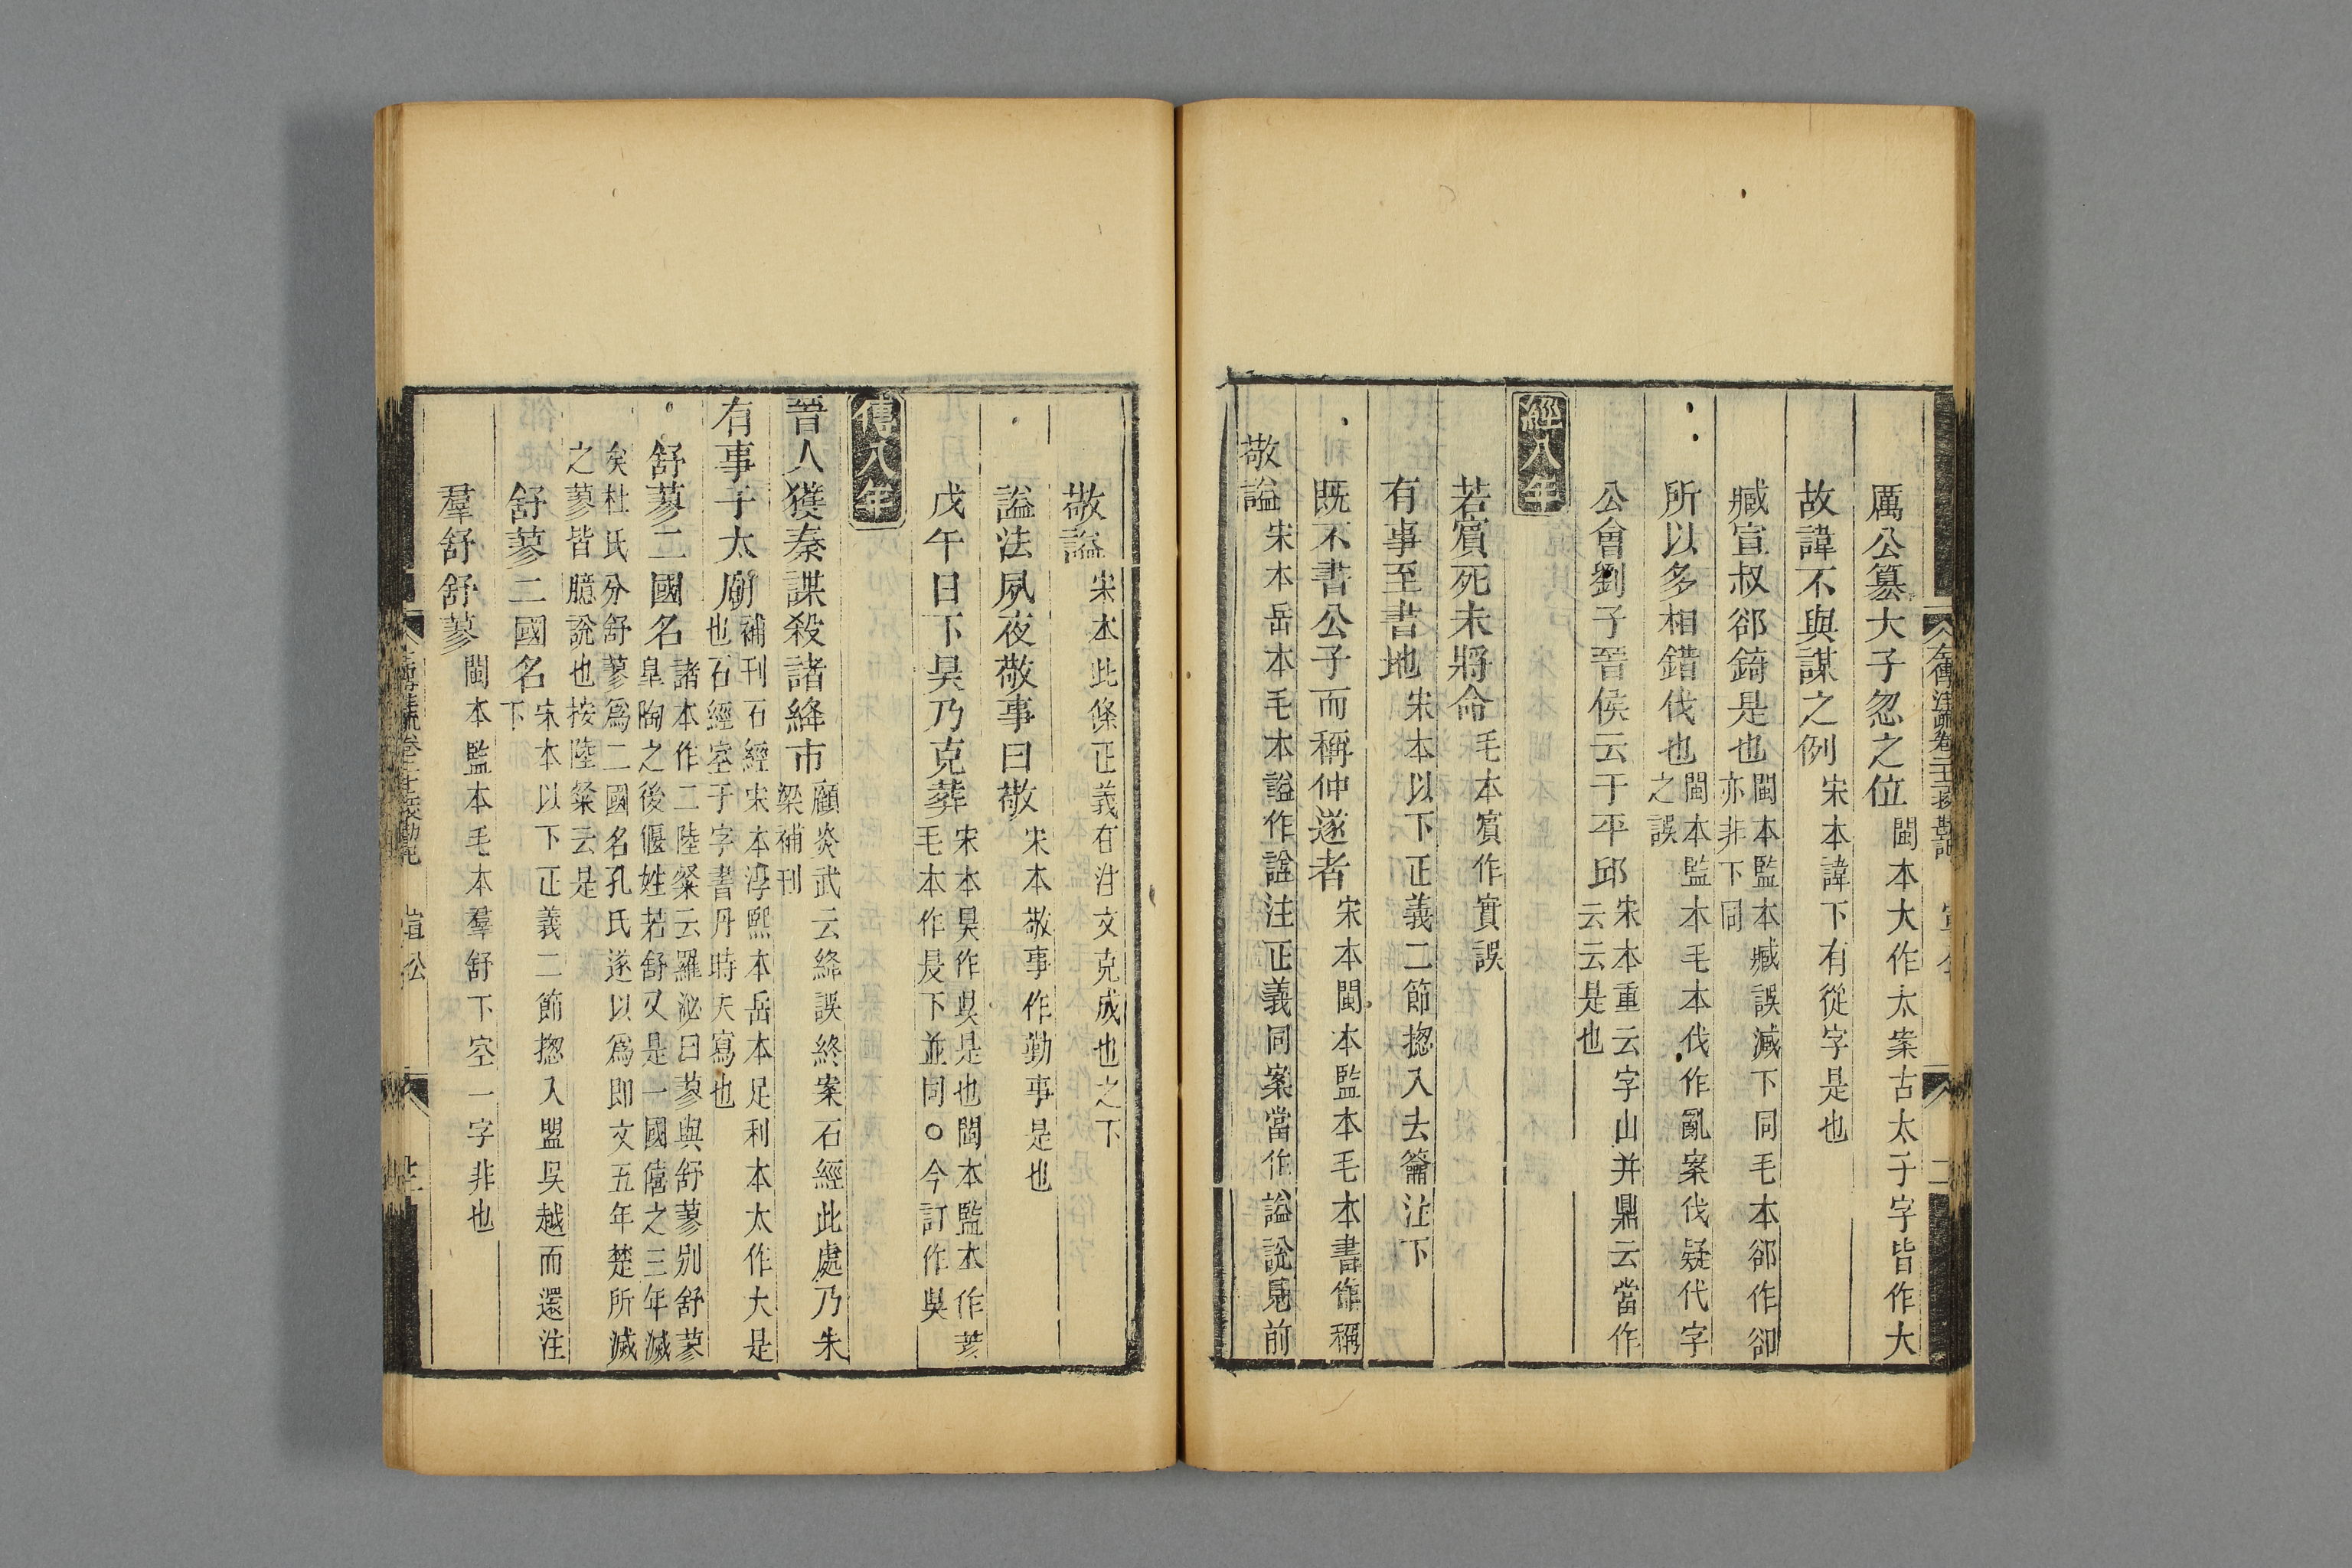 厲公簒大子忽之位閩本大作太案古太子字皆作大
故諱不與謀之例宋本諱下有從字是也
臧宣叔郤錡是也閩本監本臧誤減下同毛本郤作卻
亦非下同
所以多相錯伐也閩本監本毛本伐作亂案伐疑代字
之誤
公會劉子晉侯云于平邱宋本重云字山井鼎云當作
云云是也
經八年
若賓死未將命毛本賓作實誤
有事至書地宋本以下正義二節揔入去籥注下
既不書公子而稱仲遂者宋本閩本監本毛本書作稱
敬謚宋本岳本毛本謚作諡注正義同案當作謚說見前
敬謚宋本此條正義在注文克成也之下
謚法夙夜敬事曰敬宋本敬事作勤事是也
戊午日下昃乃克葬宋本昃作吳是也閩本監本作
毛本作昃下並同○今訂作吳
傳八年
晉人獲秦諜殺諸絳市顧炎武云絳誤終案石經此處乃朱
梁補刊
有事于太廟補刊石經宋本淳熙本岳本足利本太作大是
也石經空于字書丹時失寫也
舒蓼二國名諸本作二陸粲云羅泌曰蓼與舒蓼别舒蓼
皐陶之後偃姓若舒又是一國僖之三年滅
矣杜氏分舒蓼爲二國名孔氏遂以爲即文五年楚所滅
之蓼皆臆說也按陸粲云是
舒蓼二國名宋本以下正義二節揔入盟吳越而還注
下
羣舒舒蓼閩本監本毛本羣舒下空一字非也